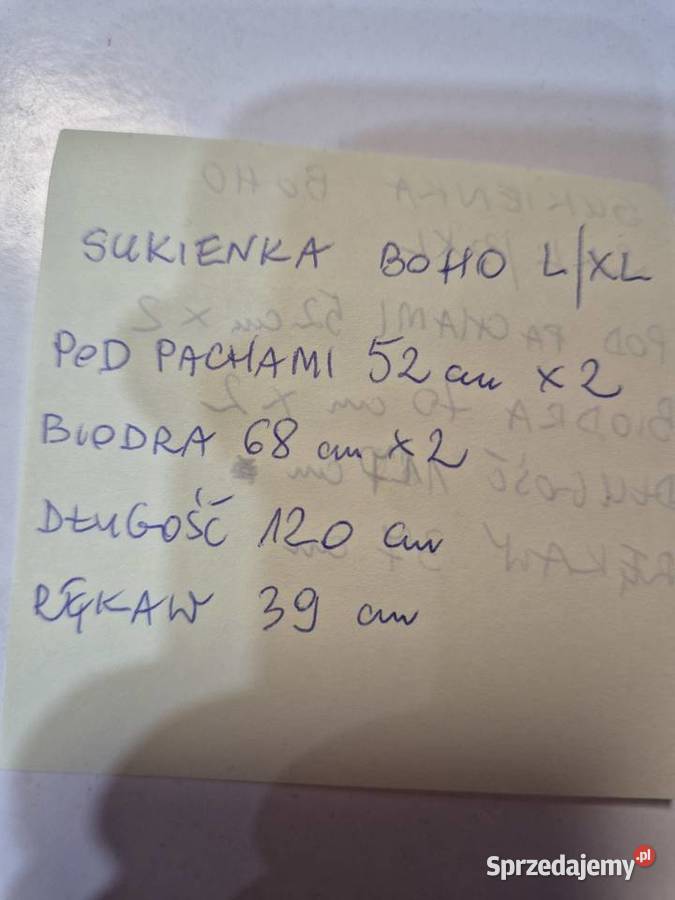 SUKIENKA BOHO L/XL
POD PACHAMI 52 cm x 2
BIODRA 68 cm x 2
DŁUGOŚĆ 120 cm
RĘKAW 39 cm
Sprzedajemy.pl